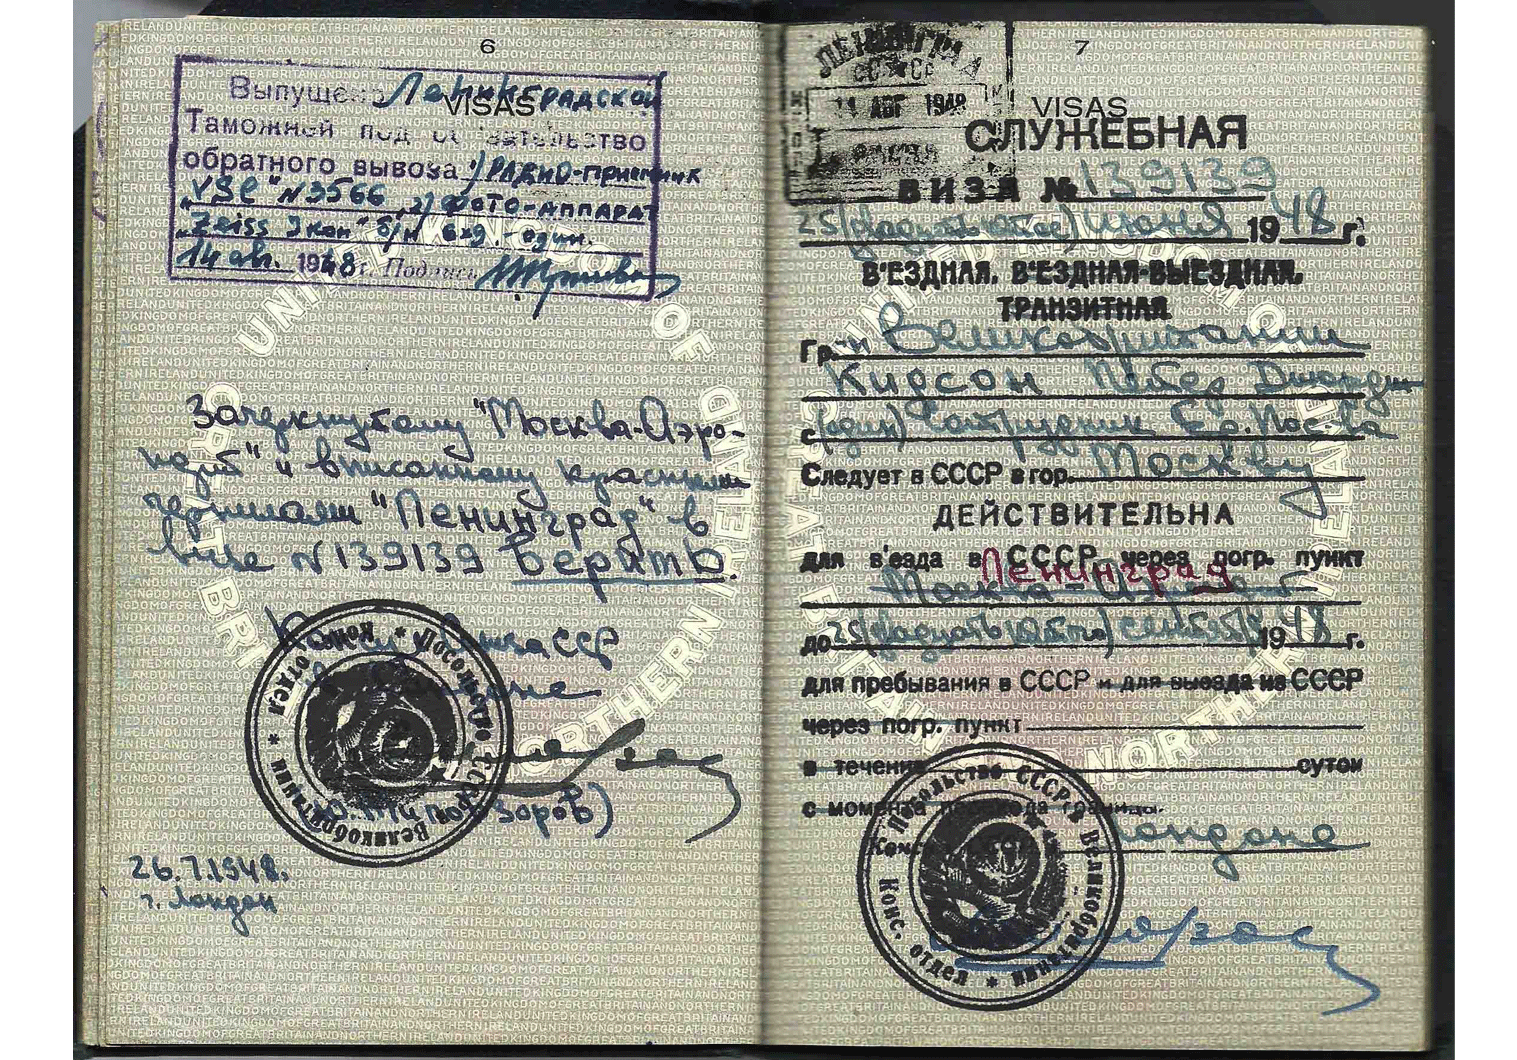 6
VISAS
Выпущено Ленинградской
Таможней под обязательство
обратного вывоза 1) РАДИО-приемник
"VSE" N3566, 2) ФОТО-АППАРАТ
"Zeiss Ikon" б/н
14 ав. 1948 г. Подпись
Зачеркнутому "Москва-Аэро-
порт" и вписанному красными
чернилами "Ленинград" в
визе N 139139 верить.
26.7.1948.
г. Лондон
Посольство СССР в Великобритании
Конс. отдел
7
VISAS
ЛЕНИНГРАД
СССР
14 АВГ 1948
СЛУЖЕБНАЯ
ВИЗА № 139139
25 (двадцать пятое) июня 1948 г.
В'ЕЗДНАЯ, В'ЕЗДНАЯ-ВЫЕЗДНАЯ,
ТРАНЗИТНАЯ
Гр-н Великобритании
Кидсон Питер
с (один) Сотрудник
Следует в СССР в гор. Москву
ДЕЙСТВИТЕЛЬНА
для в'езда в СССР через погр. пункт
Ленинград
Москва-
до 25 (двадцать пятого) сентября 1948 г.
для пребывания в СССР и для выезда из СССР
через погр. пункт
в течение суток
с момента
Лондоне
Посольство СССР в Великобритании
Конс. отдел